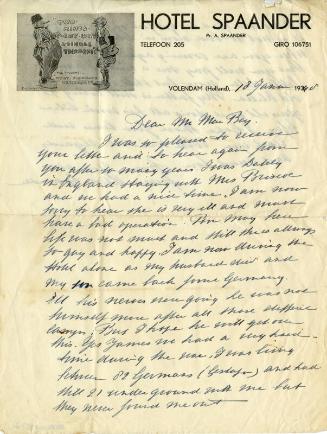 HOTEL SPAANDER
Pr. A. SPAANDER
TELEFOON 205
GIRO 106751
VOLENDAM (Holland), 18 Janu 1948
Dear Mr Mac Bey.
I was so pleased to receive
your letter and to hear again from
you after so many years I was lately
in England staying with Mrs Briscoe
and we had a nice time. I am now
sorry to hear she is very ill and must
have a bad operation.
life was not much and still she is allways
so gay and happy I am now during the
Hotel alone as my husband died and
my son came back from Germany.
Ill his nerves were going he was not
himself more after all those
But I hope he will get over
this. Yes James we had a very hard
time during the war. I was living
between 80 Germans (Gestapo) and had
still 21 underground with me but
they never found me out